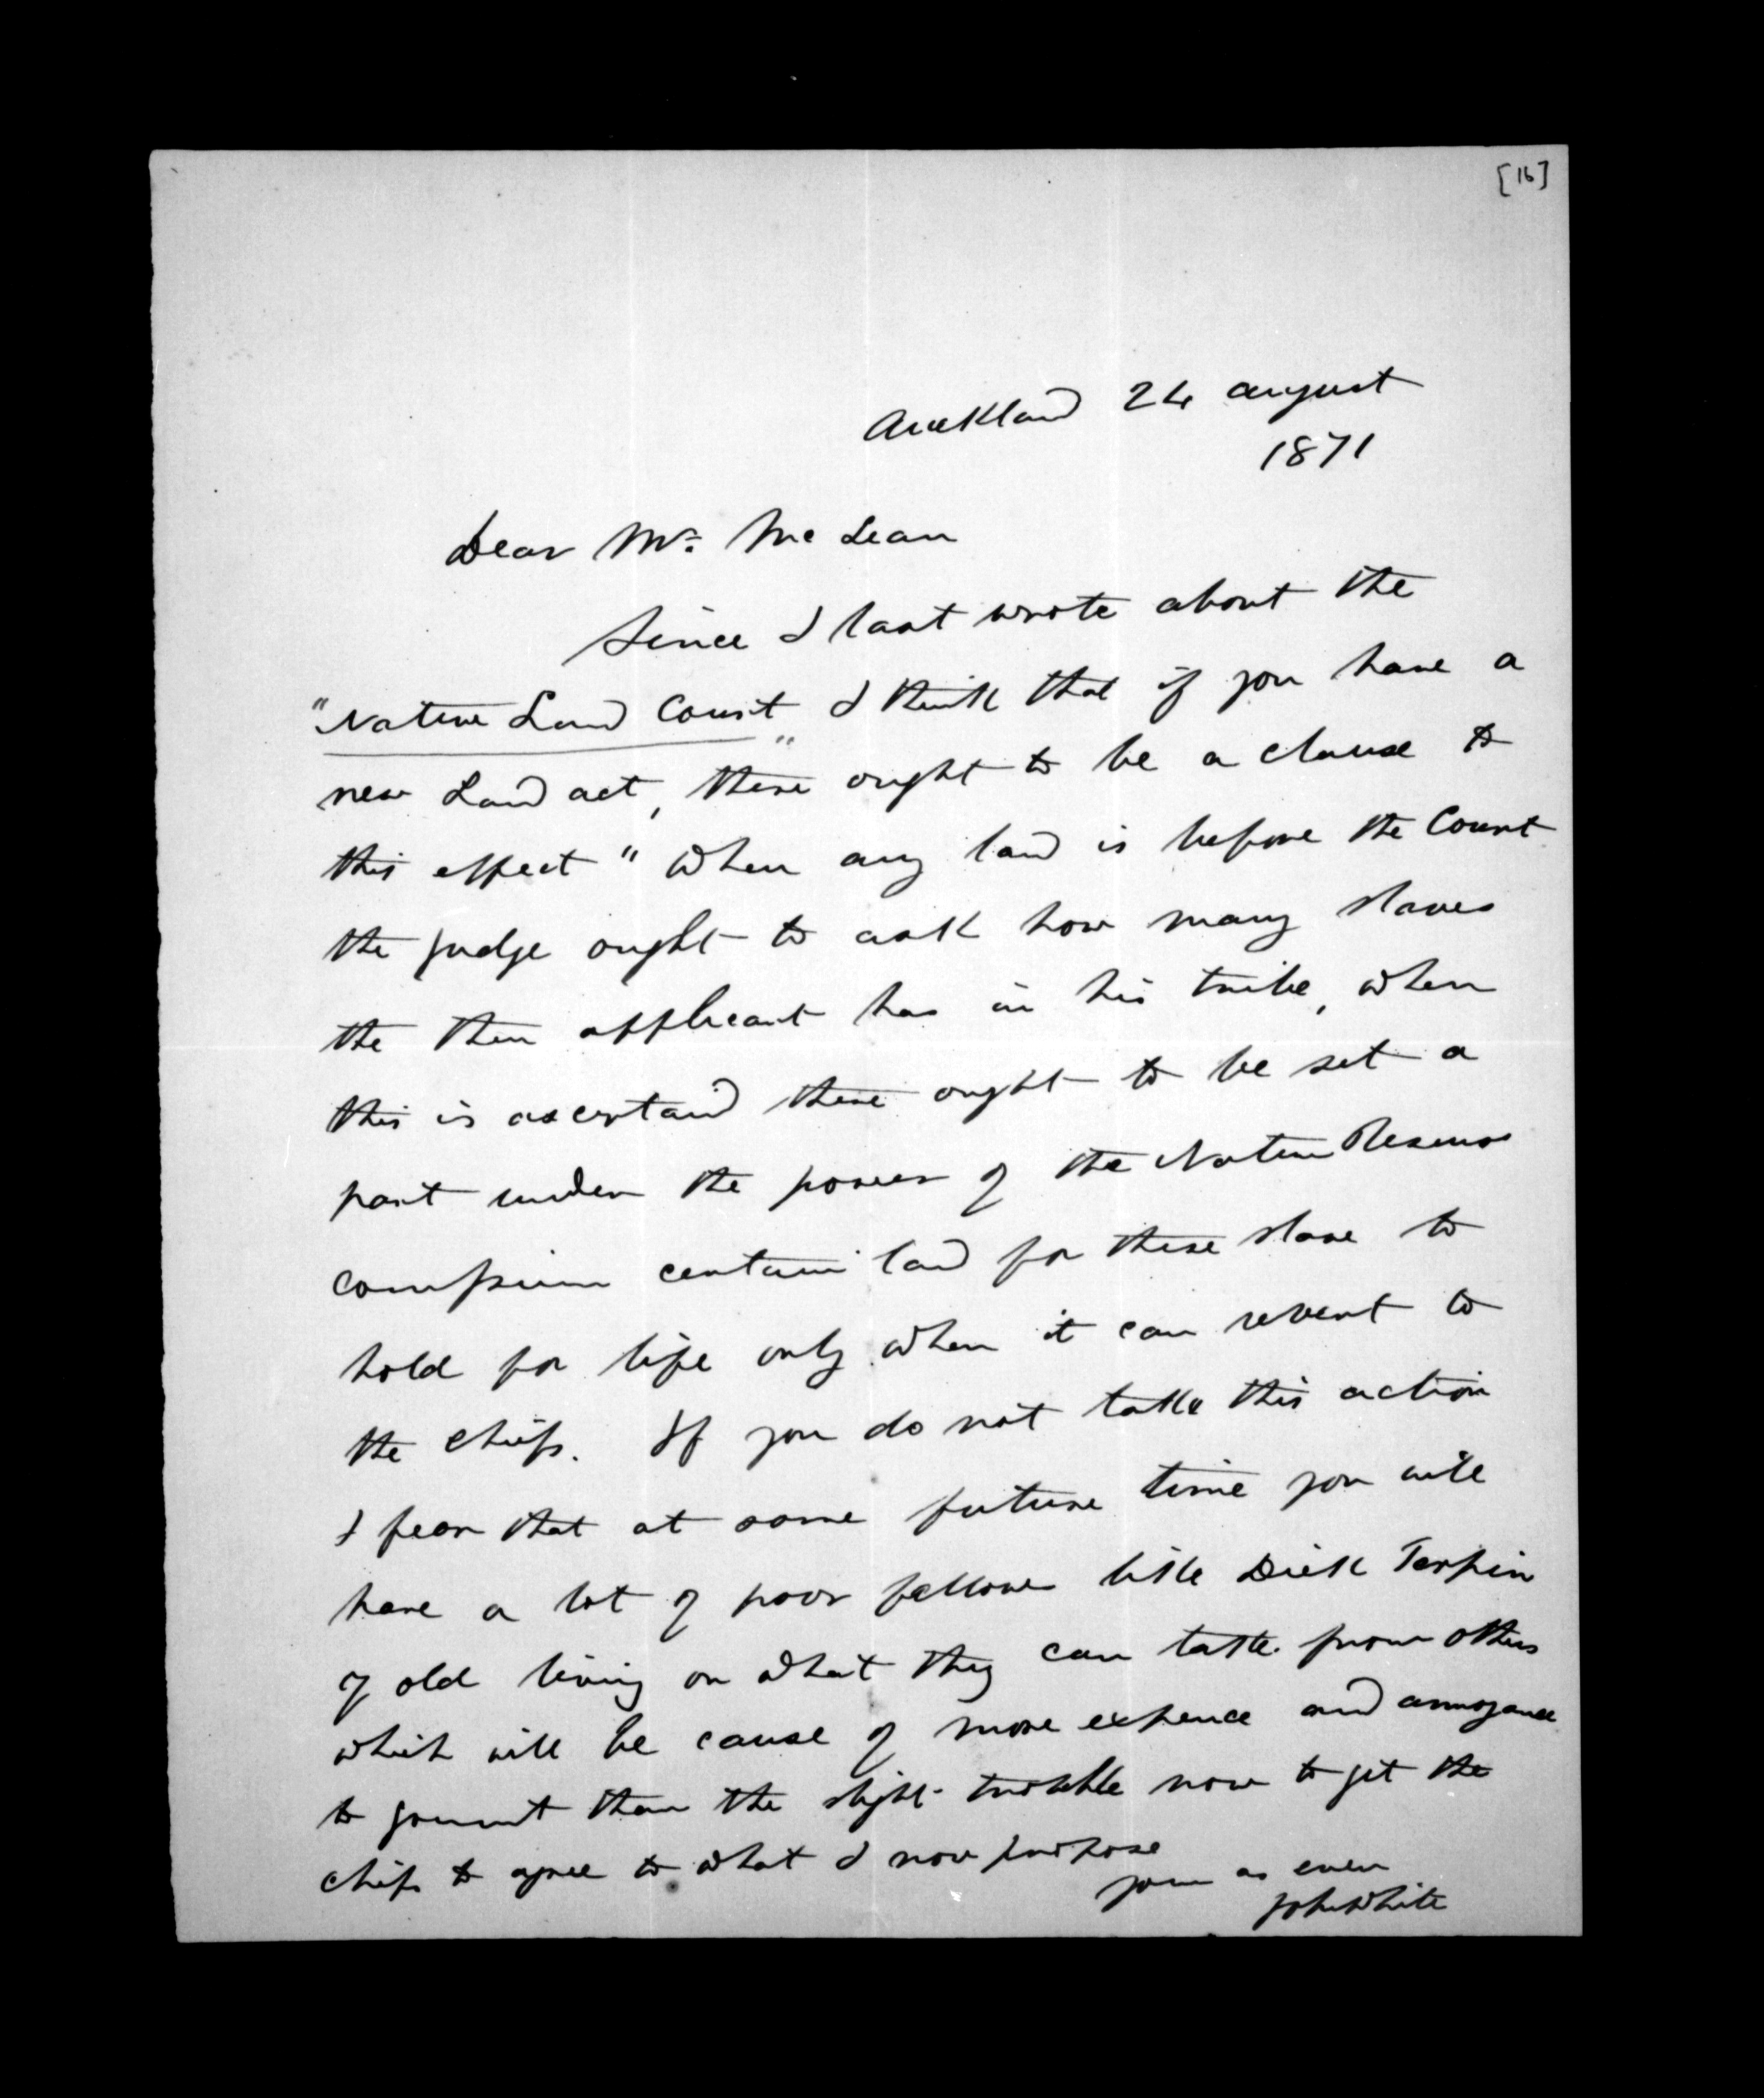 [16]
Auckland 24 August
1871
Dear Mr. McLean
Since I last wrote about the
"Native Land Court" I think that if you have a
new Land act, there ought to be a clause to
this effect "When any land is before the Court
the judge ought to ask how many slaves
the then applicant has in his tribe, when
this is ascertaind there ought to be set a
part under the power of the Native Reserve
certain land for these slave to
hold for life only when it can revert to
the chiefs. If you do not take this action
I fear that at some future time you will
have a lot of poor fellows like Dick Terpin
of old living on what they can take from others
which will be cause of more expence and annoyance
to than the slight trouble now to get the
chiefs to agree to what I now purpose
yours as ever
John White